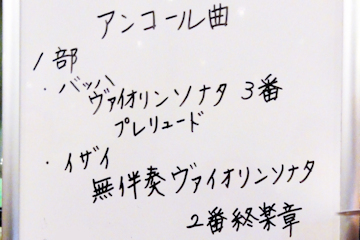 アンコール曲
1部
・バッハ
ヴァイオリンソナタ 3番
プレリュード
・イザイ
無伴奏ヴァイオリンソナタ
2番終楽章